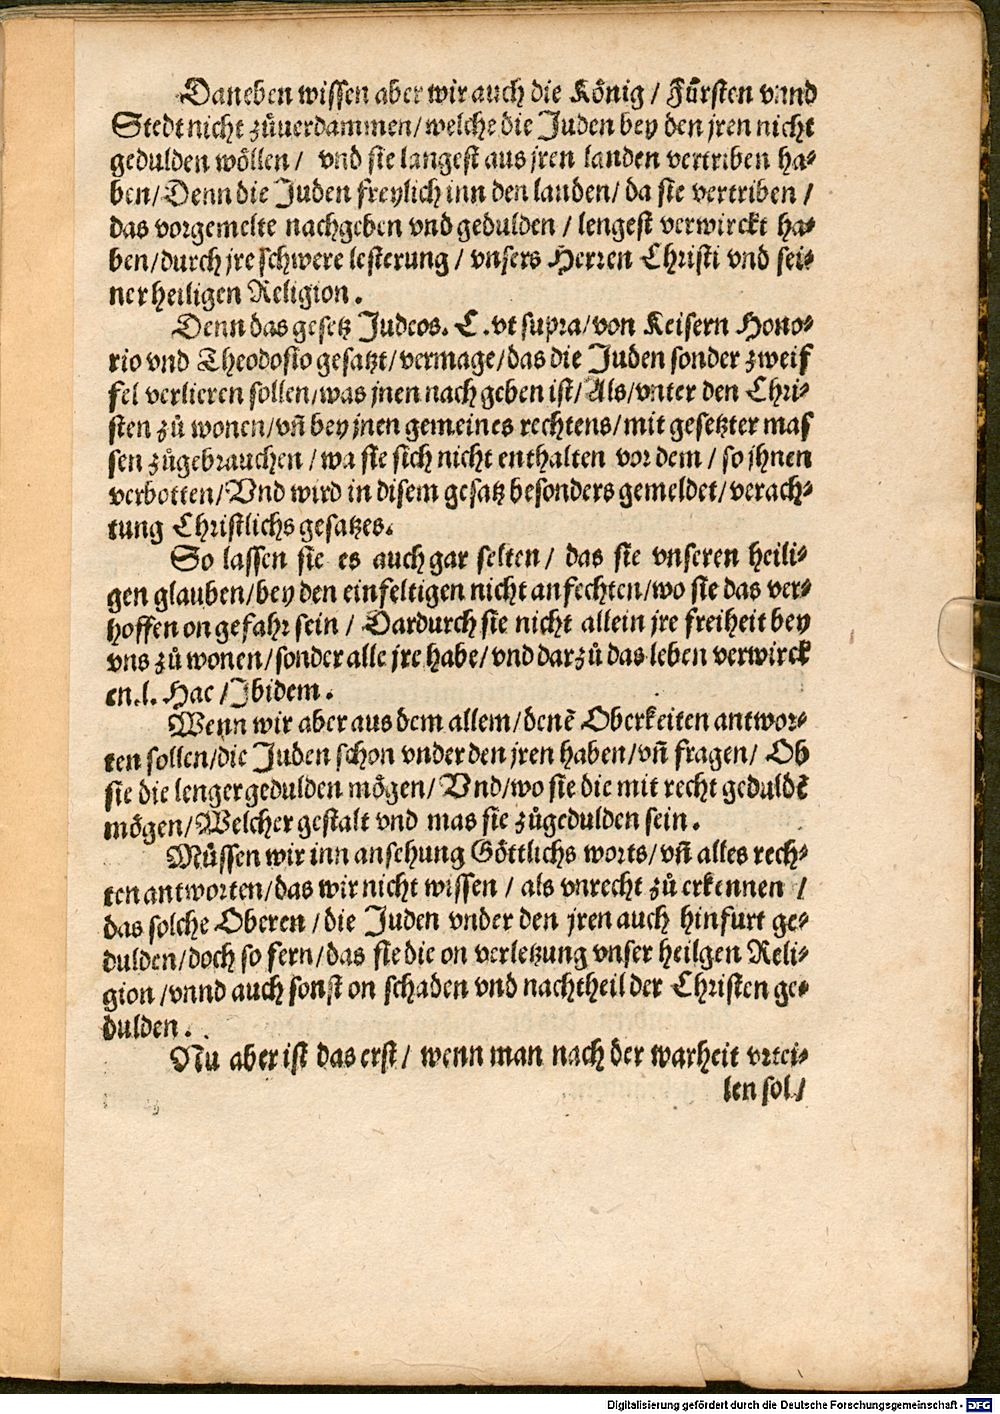 Daneben wissen aber wir auch die König / Fürsten vnnd
Stedt nicht zůuerdammen / welche die Juden bey den jren nicht
gedulden wöllen / vnd sie langest aus jren landen vertriben ha⸗
ben / Denn die Juden freylich inn den landen / da sie vertriben /
das vorgemelte nachgeben vnd gedulden / lengest verwirckt ha⸗
ben / durch jre schwere lesterung / vnsers Herren Christi vnd sei⸗
ner heiligen Religion.
Denn das gesetz Judeos. C. vt supra / von Keisern Hono⸗
rio vnd Theodosio gesatzt / vermage / das die Juden sonder zweif
fel verlieren sollen / was jnen nach geben ist / Als / vnter den Chri⸗
sten zů wonen / vñ bey jnen gemeines rechtens / mit gesetzter mas
sen zůgebrauchen / wa sie sich nicht enthalten vor dem / so jhnen
verbotten / Vnd wird in disem gesatz besonders gemeldet / verach⸗
tung Christlichs gesatzes.
So lassen sie es auch gar selten / das sie vnseren heili⸗
gen glauben / bey den einfeltigen nicht anfechten / wo sie das ver⸗
hoffen on gefahr sein / Dardurch sie nicht allein jre freiheit bey
vns zů wonen / sonder alle jre habe / vnd darzů das leben verwirck
en. l. Hac / Ibidem.
Wenn wir aber aus dem allem / denē Oberkeiten antwor⸗
ten sollen / die Juden schon vnder den jren haben / vñ fragen / Ob
sie die lenger gedulden mögen / Vnd / wo sie die mit recht geduldē
mögen / Welcher gestalt vnd mas sie zůgedulden sein.
Müssen wir inn ansehung Göttlichs worts / vñ alles rech⸗
ten antworten / das wir nicht wissen / als vnrecht zů erkennen /
das solche Oberen / die Juden vnder den jren auch hinfurt ge⸗
dulden / doch so fern / das sie die on verletzung vnser heilgen Reli⸗
gion / vnnd auch sonst on schaden vnd nachtheil der Christen ge⸗
dulden.
Nu aber ist das erst / wenn man nach der warheit vrtei⸗
len sol /
Digitalisierung gefördert durch die Deutsche Forschungsgemeinschaft - DFG